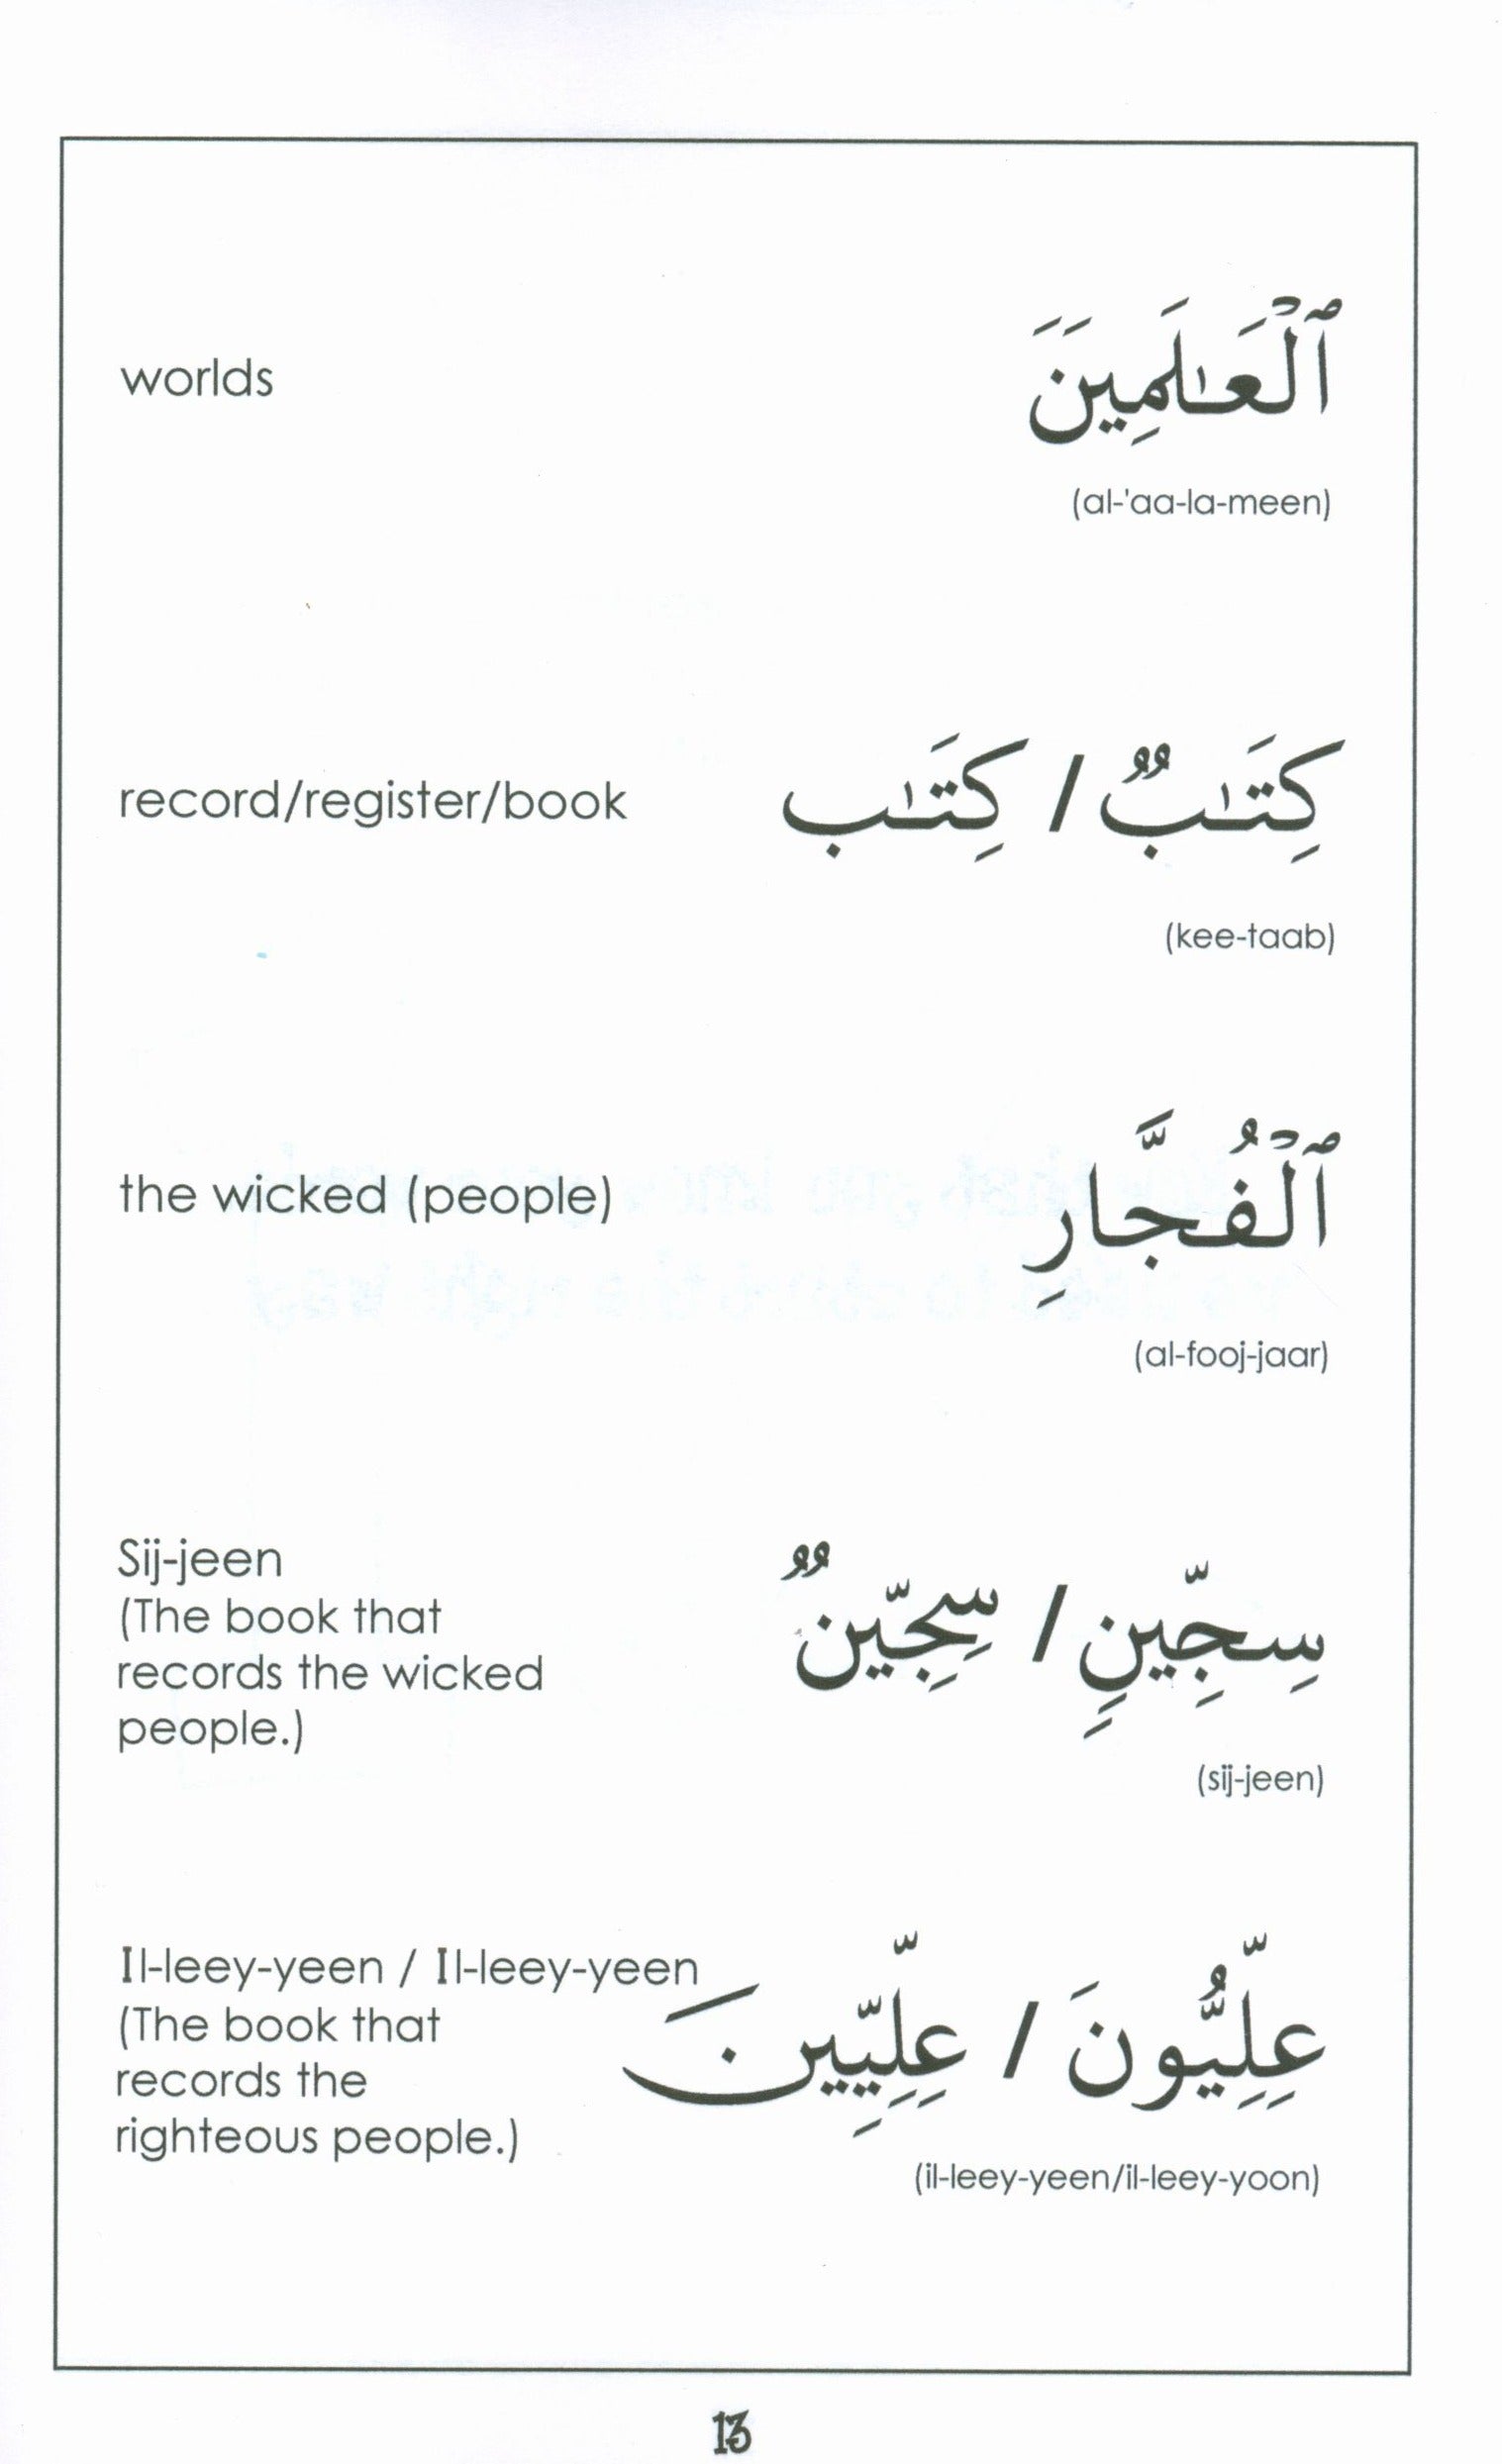 worlds
ٱلْعَـٰلَمِينَ
(al-'aa-la-meen)
record/register/book
كِتَـٰبٌ / كِتَـٰب
(kee-taab)
the wicked (people)
ٱلْفُجَّارِ
(al-fooj-jaar)
Sij-jeen
(The book that
records the wicked
people.)
سِجِّينٍ / سِجِّينٌ
(sij-jeen)
Il-leey-yeen / Il-leey-yeen
(The book that
records the
righteous people.)
عِلِّيُّونَ / عِلِّيِّينَ
(il-leey-yeen/il-leey-yoon)
13